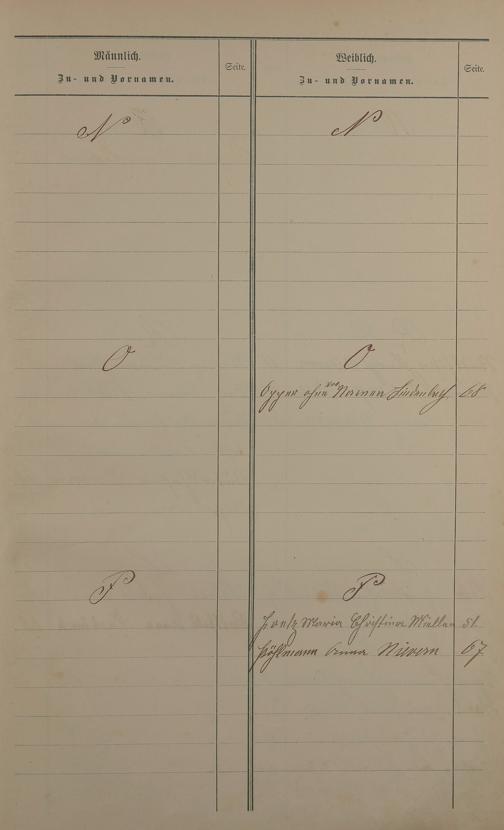 Männlich.
Zu- und Vornamen.
Seite.
Weiblich.
Zu- und Vornamen.
Seite.
N
N
O
O
Opper ohne Vor Namen Lindenbach 68
P
P
Maria Christina Müllen 51
Pöhlmann Anna Nievern 67